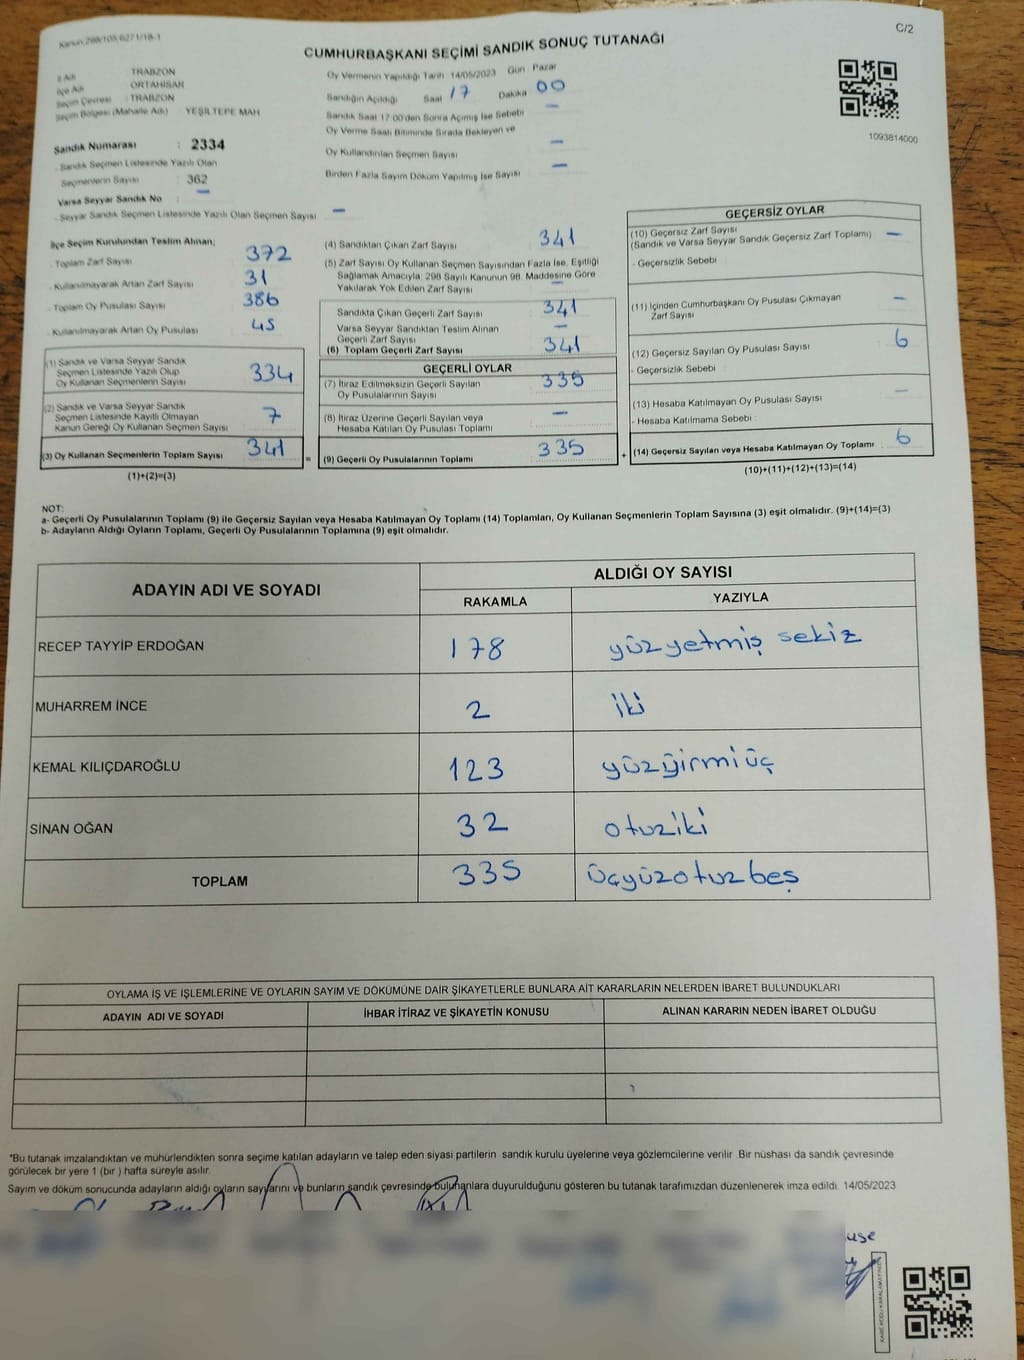 Kanun:298/105,6271/18-1
C/2
CUMHURBAŞKANI SEÇİMİ SANDIK SONUÇ TUTANAĞI
İl Adı TRABZON
İlçe Adı ORTAHİSAR
Seçim Çevresi : TRABZON
Seçim Bölgesi (Mahalle Adı) YEŞİLTEPE MAH
Sandık Numarası : 2334
- Sandık Seçmen Listesinde Yazılı Olan
Seçmenlerin Sayısı : 362
Varsa Seyyar Sandık No –
- Seyyar Sandık Seçmen Listesinde Yazılı Olan Seçmen Sayısı –
Oy Vermenin Yapıldığı Tarih 14/05/2023 Gün Pazar
Sandığın Açıldığı Saat 17 Dakika 00
Sandık Saat 17:00'den Sonra Açılmış İse Sebebi –
Oy Verme Saati Bitiminde Sırada Bekleyen ve
Oy Kullandırılan Seçmen Sayısı –
Birden Fazla Sayım Döküm Yapılmış İse Sayısı –
1093814000
İlçe Seçim Kurulundan Teslim Alınan;
- Toplam Zarf Sayısı 372
- Kullanılmayarak Artan Zarf Sayısı 31
- Toplam Oy Pusulası Sayısı 386
- Kullanılmayarak Artan Oy Pusulası 45
(1) Sandık ve Varsa Seyyar Sandık
Seçmen Listesinde Yazılı Olup
Oy Kullanan Seçmenlerin Sayısı 334
(2) Sandık ve Varsa Seyyar Sandık
Seçmen Listesinde Kayıtlı Olmayan
Kanun Gereği Oy Kullanan Seçmen Sayısı 7
(3) Oy Kullanan Seçmenlerin Toplam Sayısı 341
(1)+(2)=(3)
(4) Sandıktan Çıkan Zarf Sayısı 341
(5) Zarf Sayısı Oy Kullanan Seçmen Sayısından Fazla İse, Eşitliği
Sağlamak Amacıyla, 298 Sayılı Kanunun 98. Maddesine Göre
Yakılarak Yok Edilen Zarf Sayısı –
Sandıkta Çıkan Geçerli Zarf Sayısı 341
Varsa Seyyar Sandıktan Teslim Alınan
Geçerli Zarf Sayısı –
(6) Toplam Geçerli Zarf Sayısı 341
GEÇERLİ OYLAR
(7) İtiraz Edilmeksizin Geçerli Sayılan
Oy Pusulalarının Sayısı 335
(8) İtiraz Üzerine Geçerli Sayılan veya
Hesaba Katılan Oy Pusulası Toplamı –
= (9) Geçerli Oy Pusulalarının Toplamı 335
GEÇERSİZ OYLAR
(10) Geçersiz Zarf Sayısı
(Sandık ve Varsa Seyyar Sandık Geçersiz Zarf Toplamı) –
- Geçersizlik Sebebi
(11) İçinden Cumhurbaşkanı Oy Pusulası Çıkmayan
Zarf Sayısı –
(12) Geçersiz Sayılan Oy Pusulası Sayısı 6
- Geçersizlik Sebebi
(13) Hesaba Katılmayan Oy Pusulası Sayısı –
- Hesaba Katılmama Sebebi
+ (14) Geçersiz Sayılan veya Hesaba Katılmayan Oy Toplamı 6
(10)+(11)+(12)+(13)=(14)
NOT:
a- Geçerli Oy Pusulalarının Toplamı (9) ile Geçersiz Sayılan veya Hesaba Katılmayan Oy Toplamı (14) Toplamları, Oy Kullanan Seçmenlerin Toplam Sayısına (3) eşit olmalıdır. (9)+(14)=(3)
b- Adayların Aldığı Oyların Toplamı, Geçerli Oy Pusulalarının Toplamına (9) eşit olmalıdır.
ADAYIN ADI VE SOYADI ALDIĞI OY SAYISI
RAKAMLA YAZIYLA
RECEP TAYYİP ERDOĞAN 178 yüzyetmiş sekiz
MUHARREM İNCE 2 iki
KEMAL KILIÇDAROĞLU 123 yüzyirmiüç
SİNAN OĞAN 32 otuziki
TOPLAM 335 üçyüzotuzbeş
OYLAMA İŞ VE İŞLEMLERİNE VE OYLARIN SAYIM VE DÖKÜMÜNE DAİR ŞİKAYETLERLE BUNLARA AİT KARARLARIN NELERDEN İBARET BULUNDUKLARI
ADAYIN ADI VE SOYADI İHBAR İTİRAZ VE ŞİKAYETİN KONUSU ALINAN KARARIN NEDEN İBARET OLDUĞU
*Bu tutanak imzalandıktan ve mühürlendikten sonra seçime katılan adayların ve talep eden siyasi partilerin sandık kurulu üyelerine veya gözlemcilerine verilir .Bir nüshası da sandık çevresinde
görülecek bir yere 1 (bir ) hafta süreyle asılır.
Sayım ve döküm sonucunda adayların aldığı oyların sayılarını ve bunların sandık çevresinde bulunanlara duyurulduğunu gösteren bu tutanak tarafımızdan düzenlenerek imza edildi. 14/05/2023